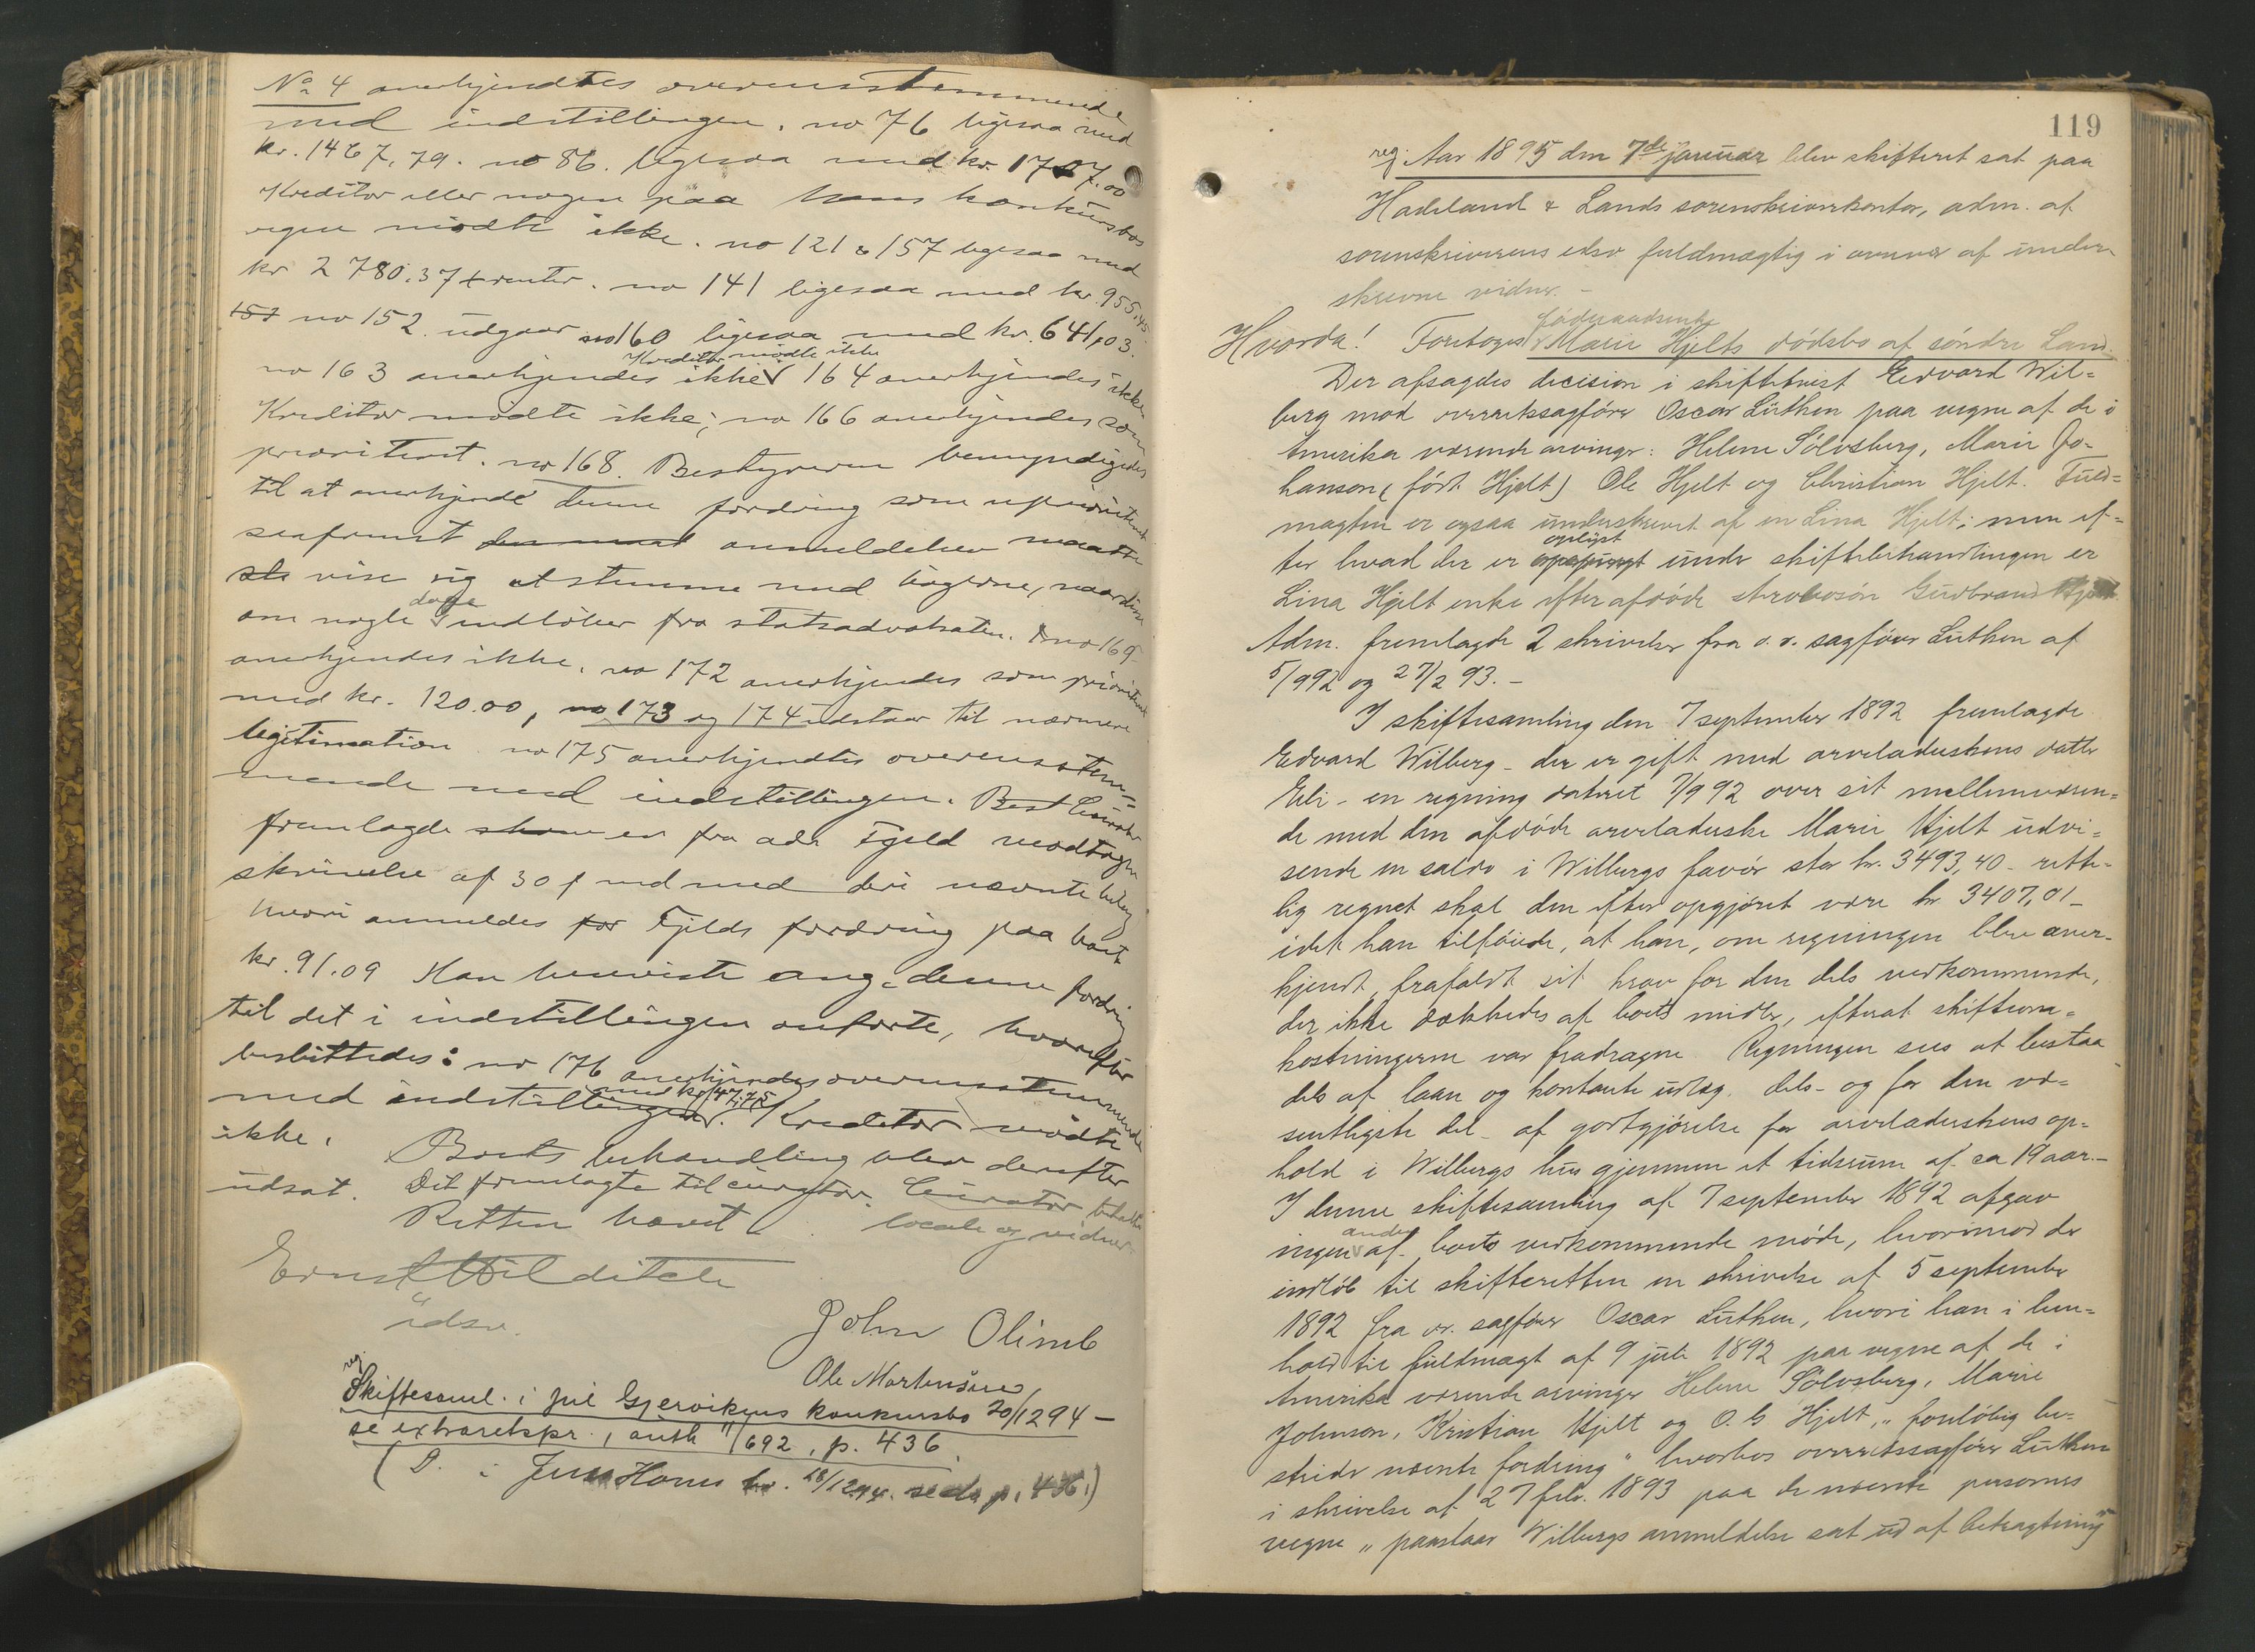 No 4 anerkjendtes overensstemmende
med indstillingen. no 76 ligesaa med
kr. 1467,79. no 86. ligesaa med kr. 1707.00
Kreditor eller nogen paa hans konkursbos
vegne mødte ikke. no 121 & 157 ligesaa med
kr 2780.37 + renter. no 141 ligesaa med kr. 955,45
157 no 152 udgaar no 160 ligesaa med kr. 641,03.
Kreditor mødte ikke
no 163 anerkjendes ikke 164 anerkjendes ikke
Kreditor mødte ikke; no 166 anerkjendes som
prioriteret. no 168. Bestyreren bemyndigedes
til at anerkjende denne fordring som uprioriteret
saafremt den anmeldelsen maatte
vise sig at stemme med bøgerne, naar disse
om nogle dage indløber fra statsadvokaten. no 169
anerkjendes ikke. no 172 anerkjendes som prioriteret
med kr. 120.00, no 173 og 174 udstaar til nærmere
legitimation no 175 anerkjendtes overensstem-
mende med indstillingen. Best Curator
fremlagde en fra adv. Fjeld modtagen
skrivelse af 30 f md med deri nævnte bilag
hvori anmeldes for Fjelds fordring paa boet
kr. 91.09 Man henviste ang. denne fordring
til det i indstillingen anførte, hvorefter
besluttedes: no 176 anerkjendes overensstemmende
med kr 147,75
med indstillingen. Kreditor mødte
ikke. Boets behandling blev derefter
udsat. Det fremlagte tilcurator. Curator beholdt
Retten hævet locale og vidner
Ernst Hilditch
idsv.
John Olimb
Ole Mortensen
reg.
Skiftesaml. i Jul Gjervikens konkursbo 20/12 94 –
se extraretspr., auth 11/6 92, p. 436
(D. i Jens Horns bo. 28/12 94. se do p. 436.)
119
reg. Aar 1895 den 7de januar blev skifteret sat paa
Hadeland & Lands sorenskriverkontor, adm. af
sorenskriverens edsv fuldmægtig i overvær af under-
skrevne vidner. –
fødenaadsenke
Hvorda! Foretoges Marie Hjelts dødsbo af søndre Land.
Der afsagdes decision i skiftetvist Edvard Wil=
berg mod overretssagfører Oscar Lüthen paa vegne af de i
Amerika værende arvinger: Helene Sølvsberg, Marie Jo-
hanson (født Hjelt) Ole Hjelt og Christian Hjelt. Fuld=
magten er ogsaa underskrevet af en Lina Hjelt; men ef=
oplyst
ter hvad der er under skiftebehandlingen er
Lina Hjelt enke efter afdøde Gudbrand Hjelt
Adm. fremlagde 2 skrivelser fra o.r. sagfører Lüthen af
5/9 92 og 27/2 93. –
I skiftesamling den 7 september 1892 fremlagde
Edvard Wilberg – der er gift med arveladerskens datter
Eli – en regning dateret 7/9 92 over sit mellemværen=
de med den afdøde arveladerske Marie Hjelt udvi=
sende en saldo i Wilbergs favør stor kr. 3493,40 – rette-
lig regnet skal den efter opgjøret være kr 3407,01 –
idet han tilføiede, at han, om regningen blev aner-
kjendt, frafaldt sit krav for den dels vedkommende,
der ikke dækkedes af boets midler, efterat skifteom=
kostningerne var fradragne. Regningen sees at bestaa
dels af laan og kontante udlæg, dels – og for den væ=
sentligste del – af godtgjørelse for arveladerskens op=
hold i Wilbergs hus gjennem et tidsrum af ca 19 aar. –
I denne skiftesamling af 7 september 1892 afgav
andre
ingen af boets vedkommende møde, hvorimod der
indløb til skifteretten en skrivelse af 5 september
1892 fra or. sagfører Oscar Lüthen, hvori han i hen=
hold til fuldmagt af 9 juli 1892 paa vegne af de i
Amerika værende arvinger Helene Sølvsberg, Marie
Johnson, Kristian Hjelt og O. G Hjelt, „foreløbig be=
strider nævnte fordring" hvorhos overretssagfører Lüthen
i skrivelse af 27 febr. 1893 paa de nævnte personers
vegne „paastaar Wilbergs anmeldelse sat ud af betragtning"